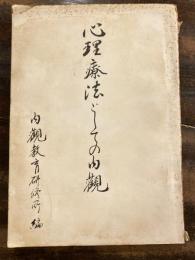 心理療法としての内観
内観教育研修所編